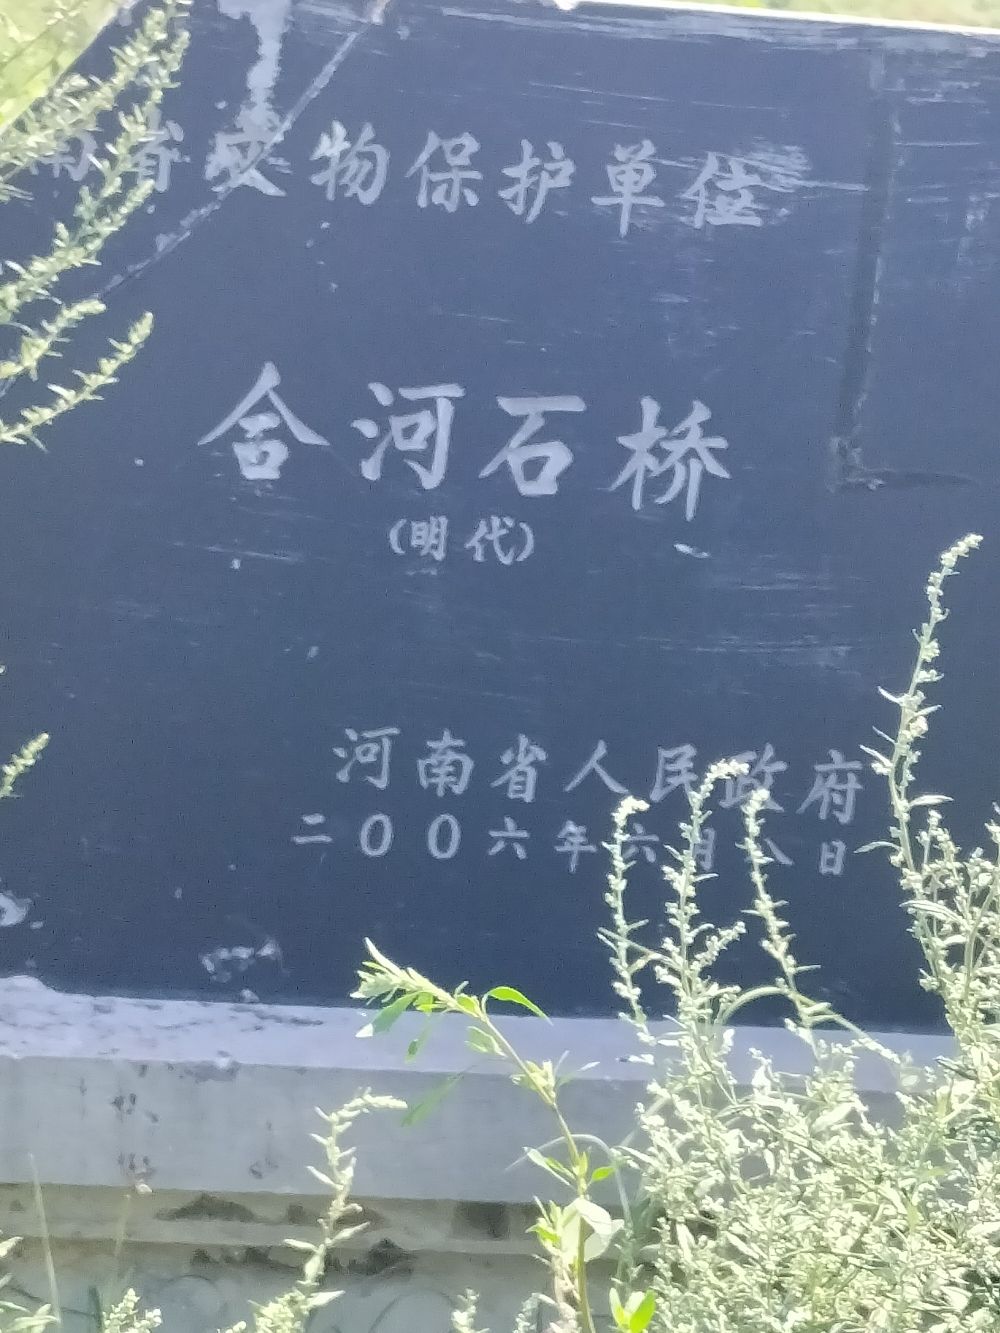 南省文物保护单位
合河石桥
(明代)
河南省人民政府
二〇〇六年六月八日